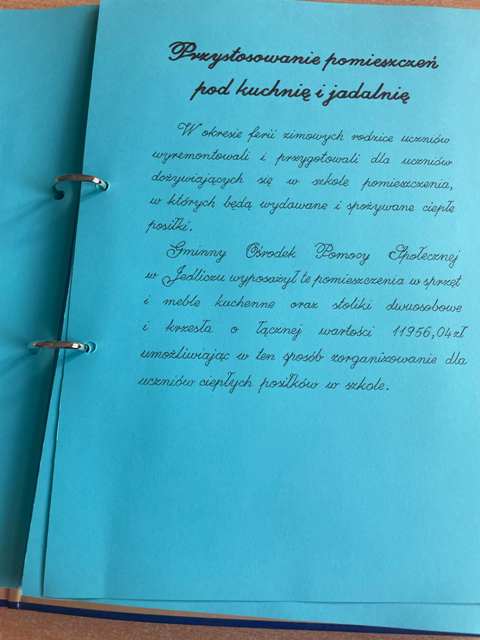 Przystosowanie pomieszczeń
pod kuchnię i jadalnię
W okresie ferii zimowych rodzice uczniów
wyremontowali i przygotowali dla uczniów
dożywiających się w szkole pomieszczenia,
w których będą wydawane i spożywane ciepłe
posiłki.
Gminny Ośrodek Pomocy Społecznej
w Jedliczu wyposażył te pomieszczenia w sprzęt
i meble kuchenne oraz stoliki dwuosobowe
i krzesła o łącznej wartości 11956,04zł
umożliwiając w ten sposób zorganizowanie dla
uczniów ciepłych posiłków w szkole.